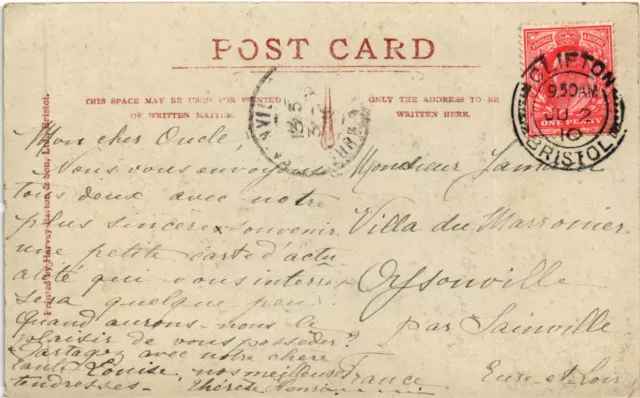 POST CARD
THIS SPACE MAY BE USED FOR PRINTED
OR WRITTEN MATTER.
ONLY THE ADDRESS TO BE
WRITTEN HERE.
CLIFTON
9.50AM
10
BRISTOL
ONE PENNY
Printed by Harvey Barton & Son, Ltd., Bristol.
Mon cher Oncle,
Nous vous envoyons
tous deux avec notre
plus sincère souvenir
une petite carte d'actu
alité qui vous intéres
sera quelque peu.
Quand aurons-nous le
plaisir de vous posséder?
Partagez avec notre chère
tante Louise, nos meilleures
tendresses - Thérèse Henri
Monsieur
Villa du Marronier
Oysonville
par Sainville
Eure-et-Loir
France